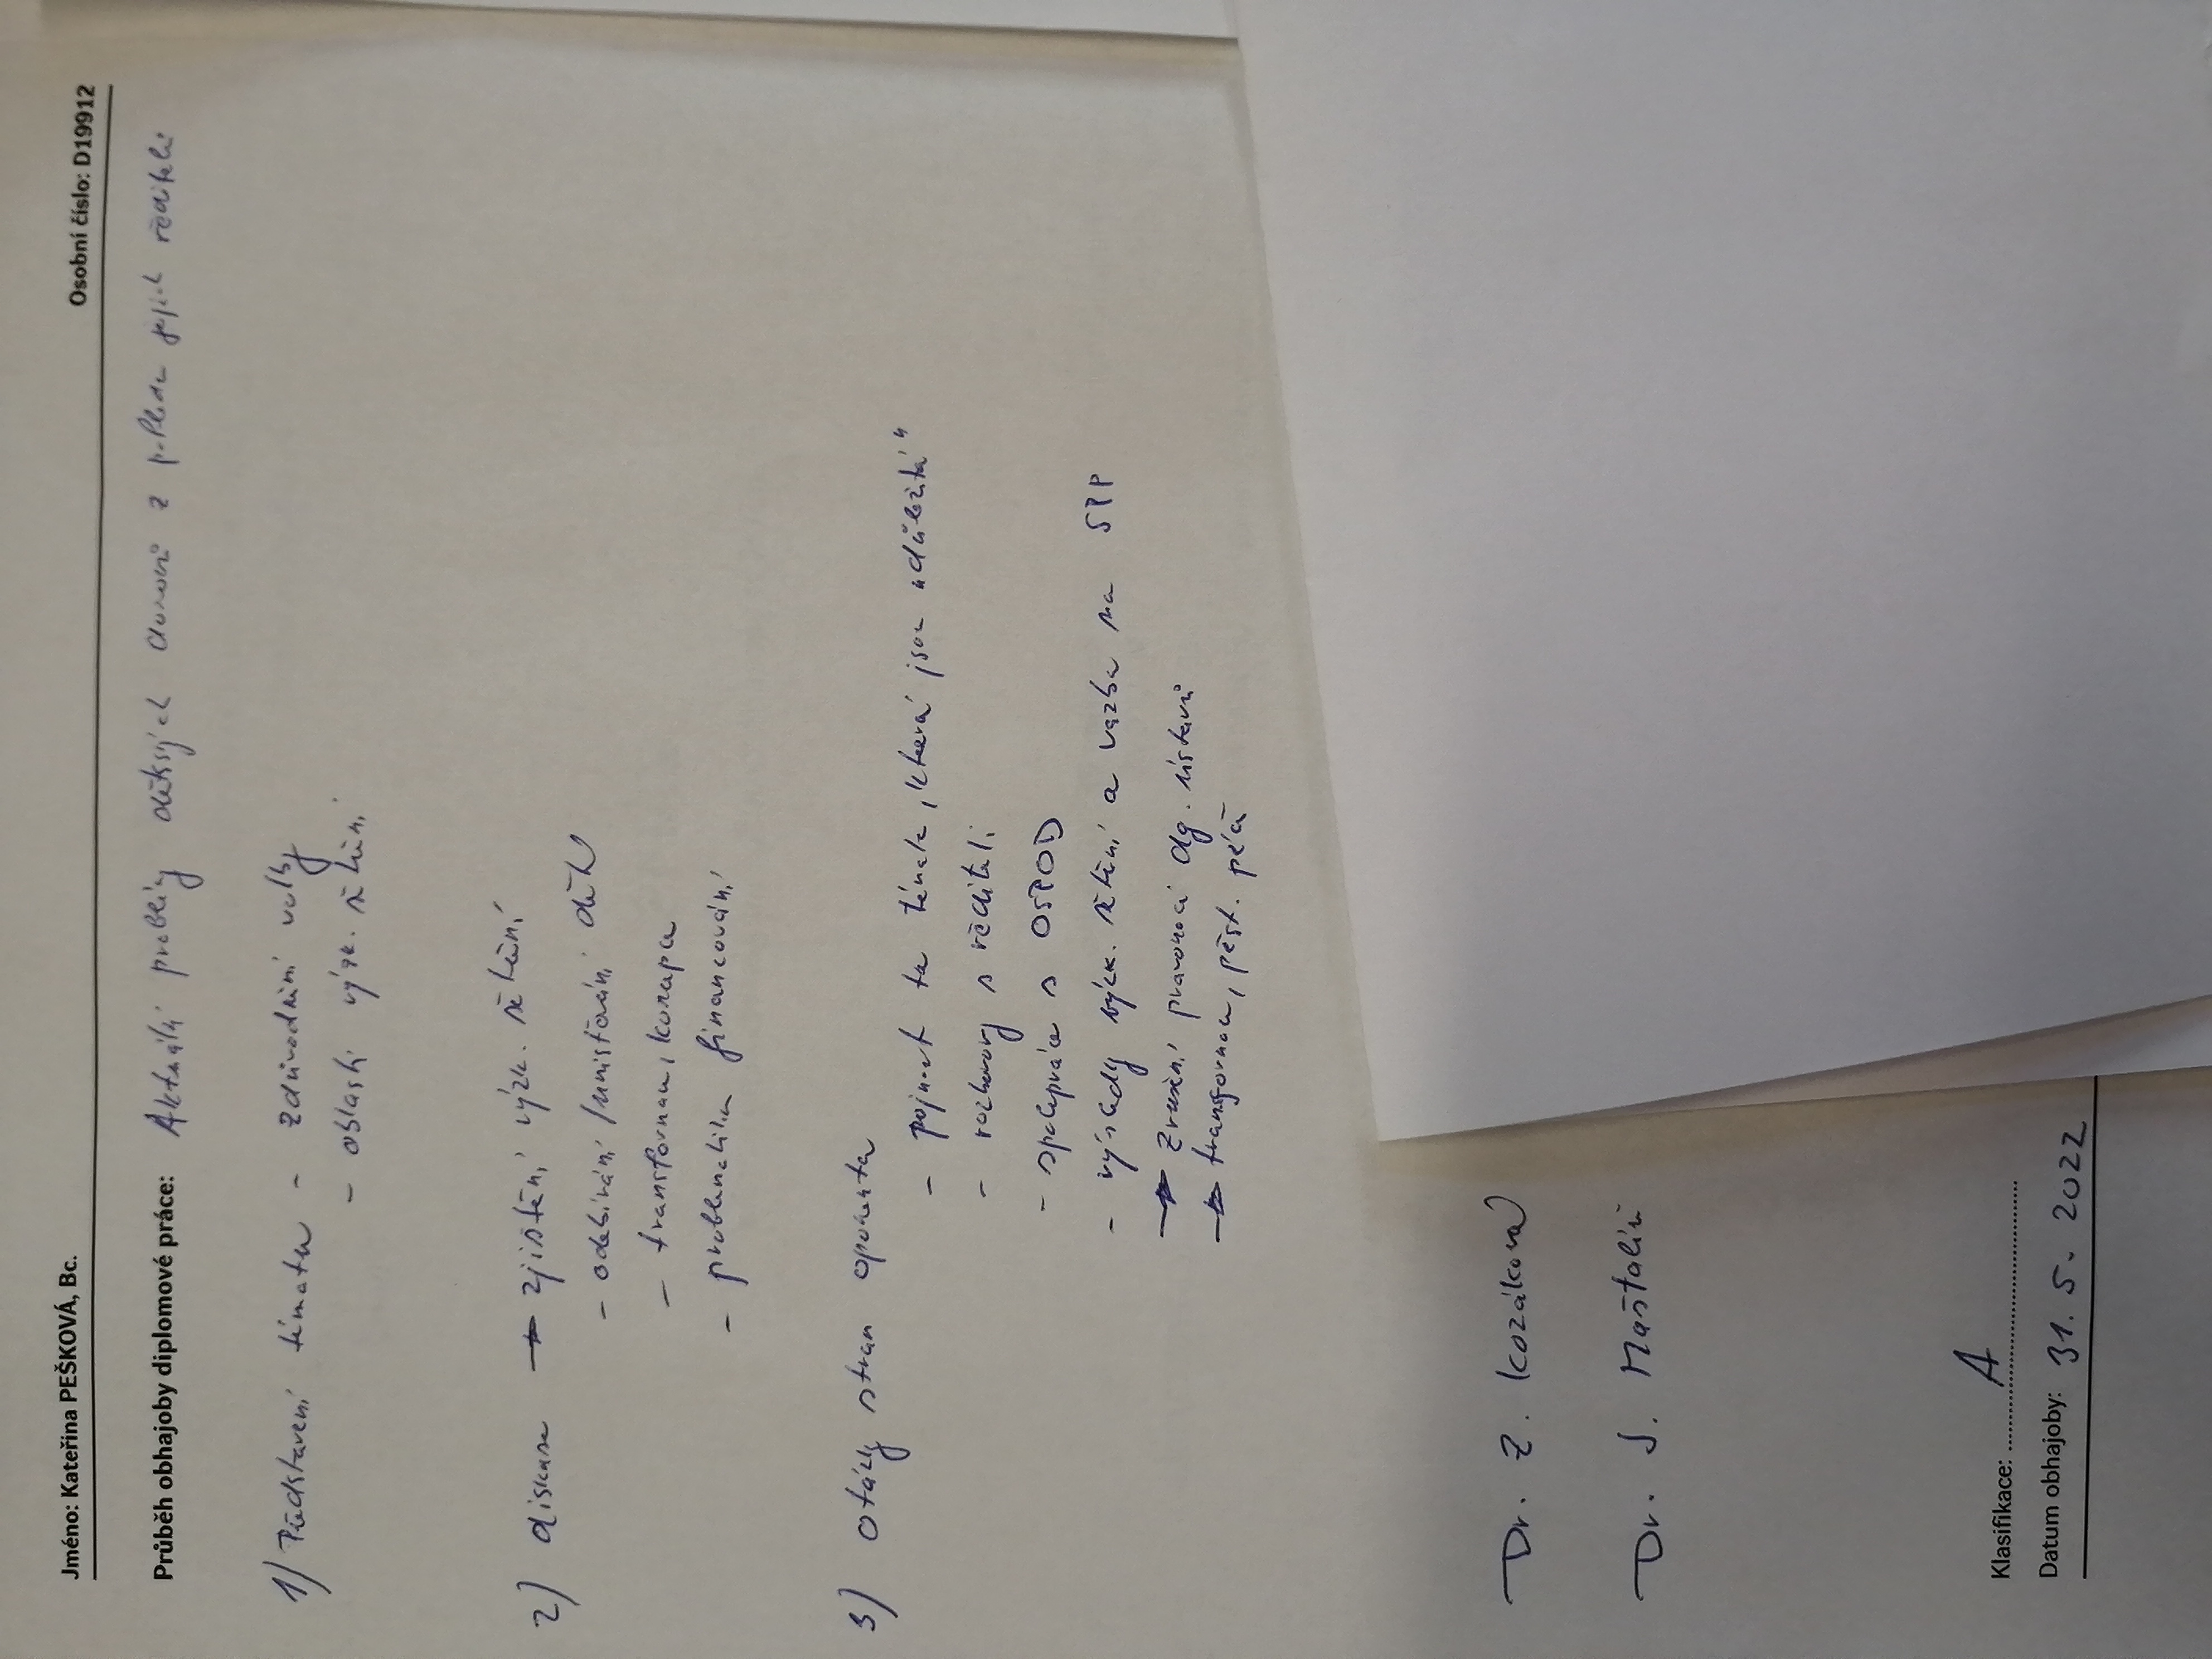 Jméno: Kateřina PEŠKOVÁ, Bc. Osobní číslo: D19912
Průběh obhajoby diplomové práce: Aktuální problémy dětských domovů z pohledu jejich ředitelů
1) Představení tématu - zdůvodnění volby
- oblasti výzk. šetření
2) diskuse → zjištění výzk. šetření
- odebírání/umisťování dětí
- transformační koncepce
- problematika financování
3) otázky stran oponenta
- pojmout ta témata, která jsou „důležitá"
- rozhovory s řediteli
- spolupráce s OSPOD
- výsledy výzk. šetření a vazba na SPP
→ zrušení pravomocí dg. ústavů
→ transformace, pěst. péče
Dr. Z. Kozáková
Dr. J. Maštalíř
Klasifikace: A
Datum obhajoby: 31. 5. 2022